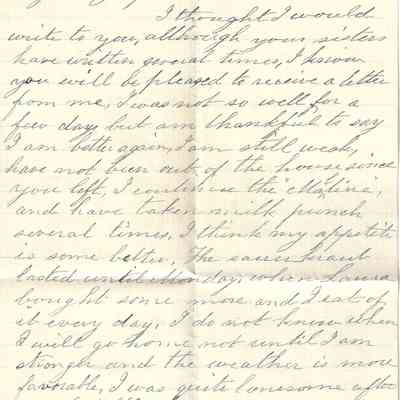 I thought I would
write to you, although your sisters
have written several times, I know
you will be pleased to receive a letter
from me, I was not so well for a
few days but am thankful to say
I am better again, I am still weak,
have not been out of the house since
you left, I continue the "Maltine",
and have taken milk punch
several times, I think my appetite
is some better, The sauerkraut
lasted until Monday, when Laura
bought some more and I eat of
it every day, I do not know when
I will go home not until I am
stronger and the weather is more
favorable, I was quite lonesome after